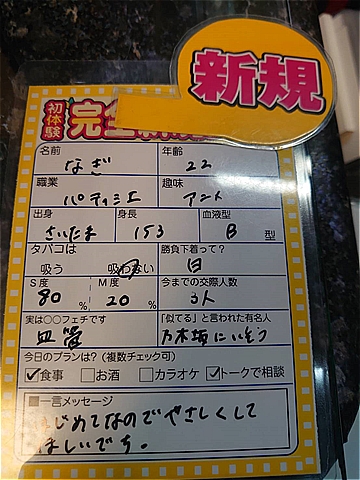 新規
初体験
名前 年齢
なぎ 22
職業 趣味
パティシエ アニメ
出身 身長 血液型
さいたま 153 B 型
タバコは 勝負下着って?
吸う 吸わない 白
S度 M度 今までの交際人数
80 % 20 % 3人
実は○○フェチです 「似てる」と言われた有名人
血管 乃木坂にいそう
今日のプランは?(複数チェック可)
✓食事 □お酒 □カラオケ ✓トークで相談
■一言メッセージ
はじめてなのでやさしくして
ほしいでち。